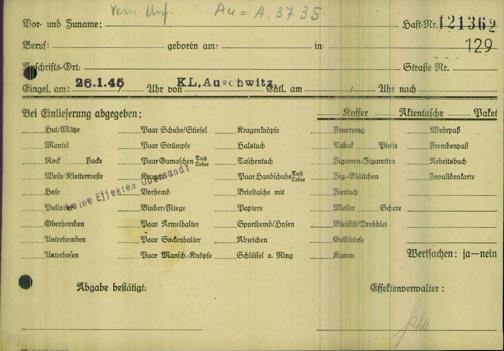 Vern. Unf. Au = A. 3735
Vor- und Zuname: Haft-Nr. 121362
129
Beruf: geboren am: in
Anschrifts-Ort: Straße Nr.
Eingel. am: 26.1.45 Uhr von KL, Auschwitz Entl. am Uhr nach
Bei Einlieferung abgegeben: Koffer Aktentasche Paket
Hut/Mütze Paar Schuhe/Stiefel Kragenknöpfe Feuerzeug Wehrpaß
Mantel Paar Strümpfe Halstuch Tabak Pfeife Fremdenpaß
Rock Jacke Paar Gamaschen Tuch Leder Taschentuch Zigarren/Zigaretten Arbeitsbuch
Weste/Kletterweste Kragen Paar Handschuhe Tuch Leder Zig.-Blättchen Invalidenkarte
Hose Vorhemd Brieftasche mit Ziertuch
Pullover Binder/Fliege Papiere Messer Schere
Oberhemden Paar Ärmelhalter Sporthemd/Hosen Bleistift/Drehblei
Unterhemden Paar Sockenhalter Abzeichen Geldbörse
Unterhosen Paar Mansch.-Knöpfe Schlüssel a. Ring Kamm Wertsachen: ja—nein
Keine Effekten übersandt
Abgabe bestätigt: Effektenverwalter: